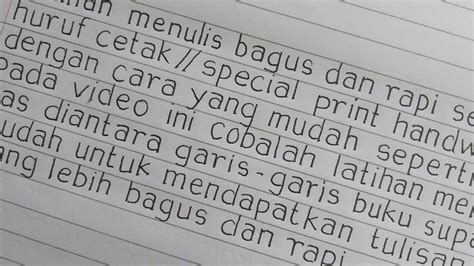 menulis bagus dan rapi se
huruf cetak // special print handw
dengan cara yang mudah seperti
pada video ini cobalah latihan me
as diantara garis-garis buku sup
udah untuk mendapatkan tulisan
ang lebih bagus dan rapi